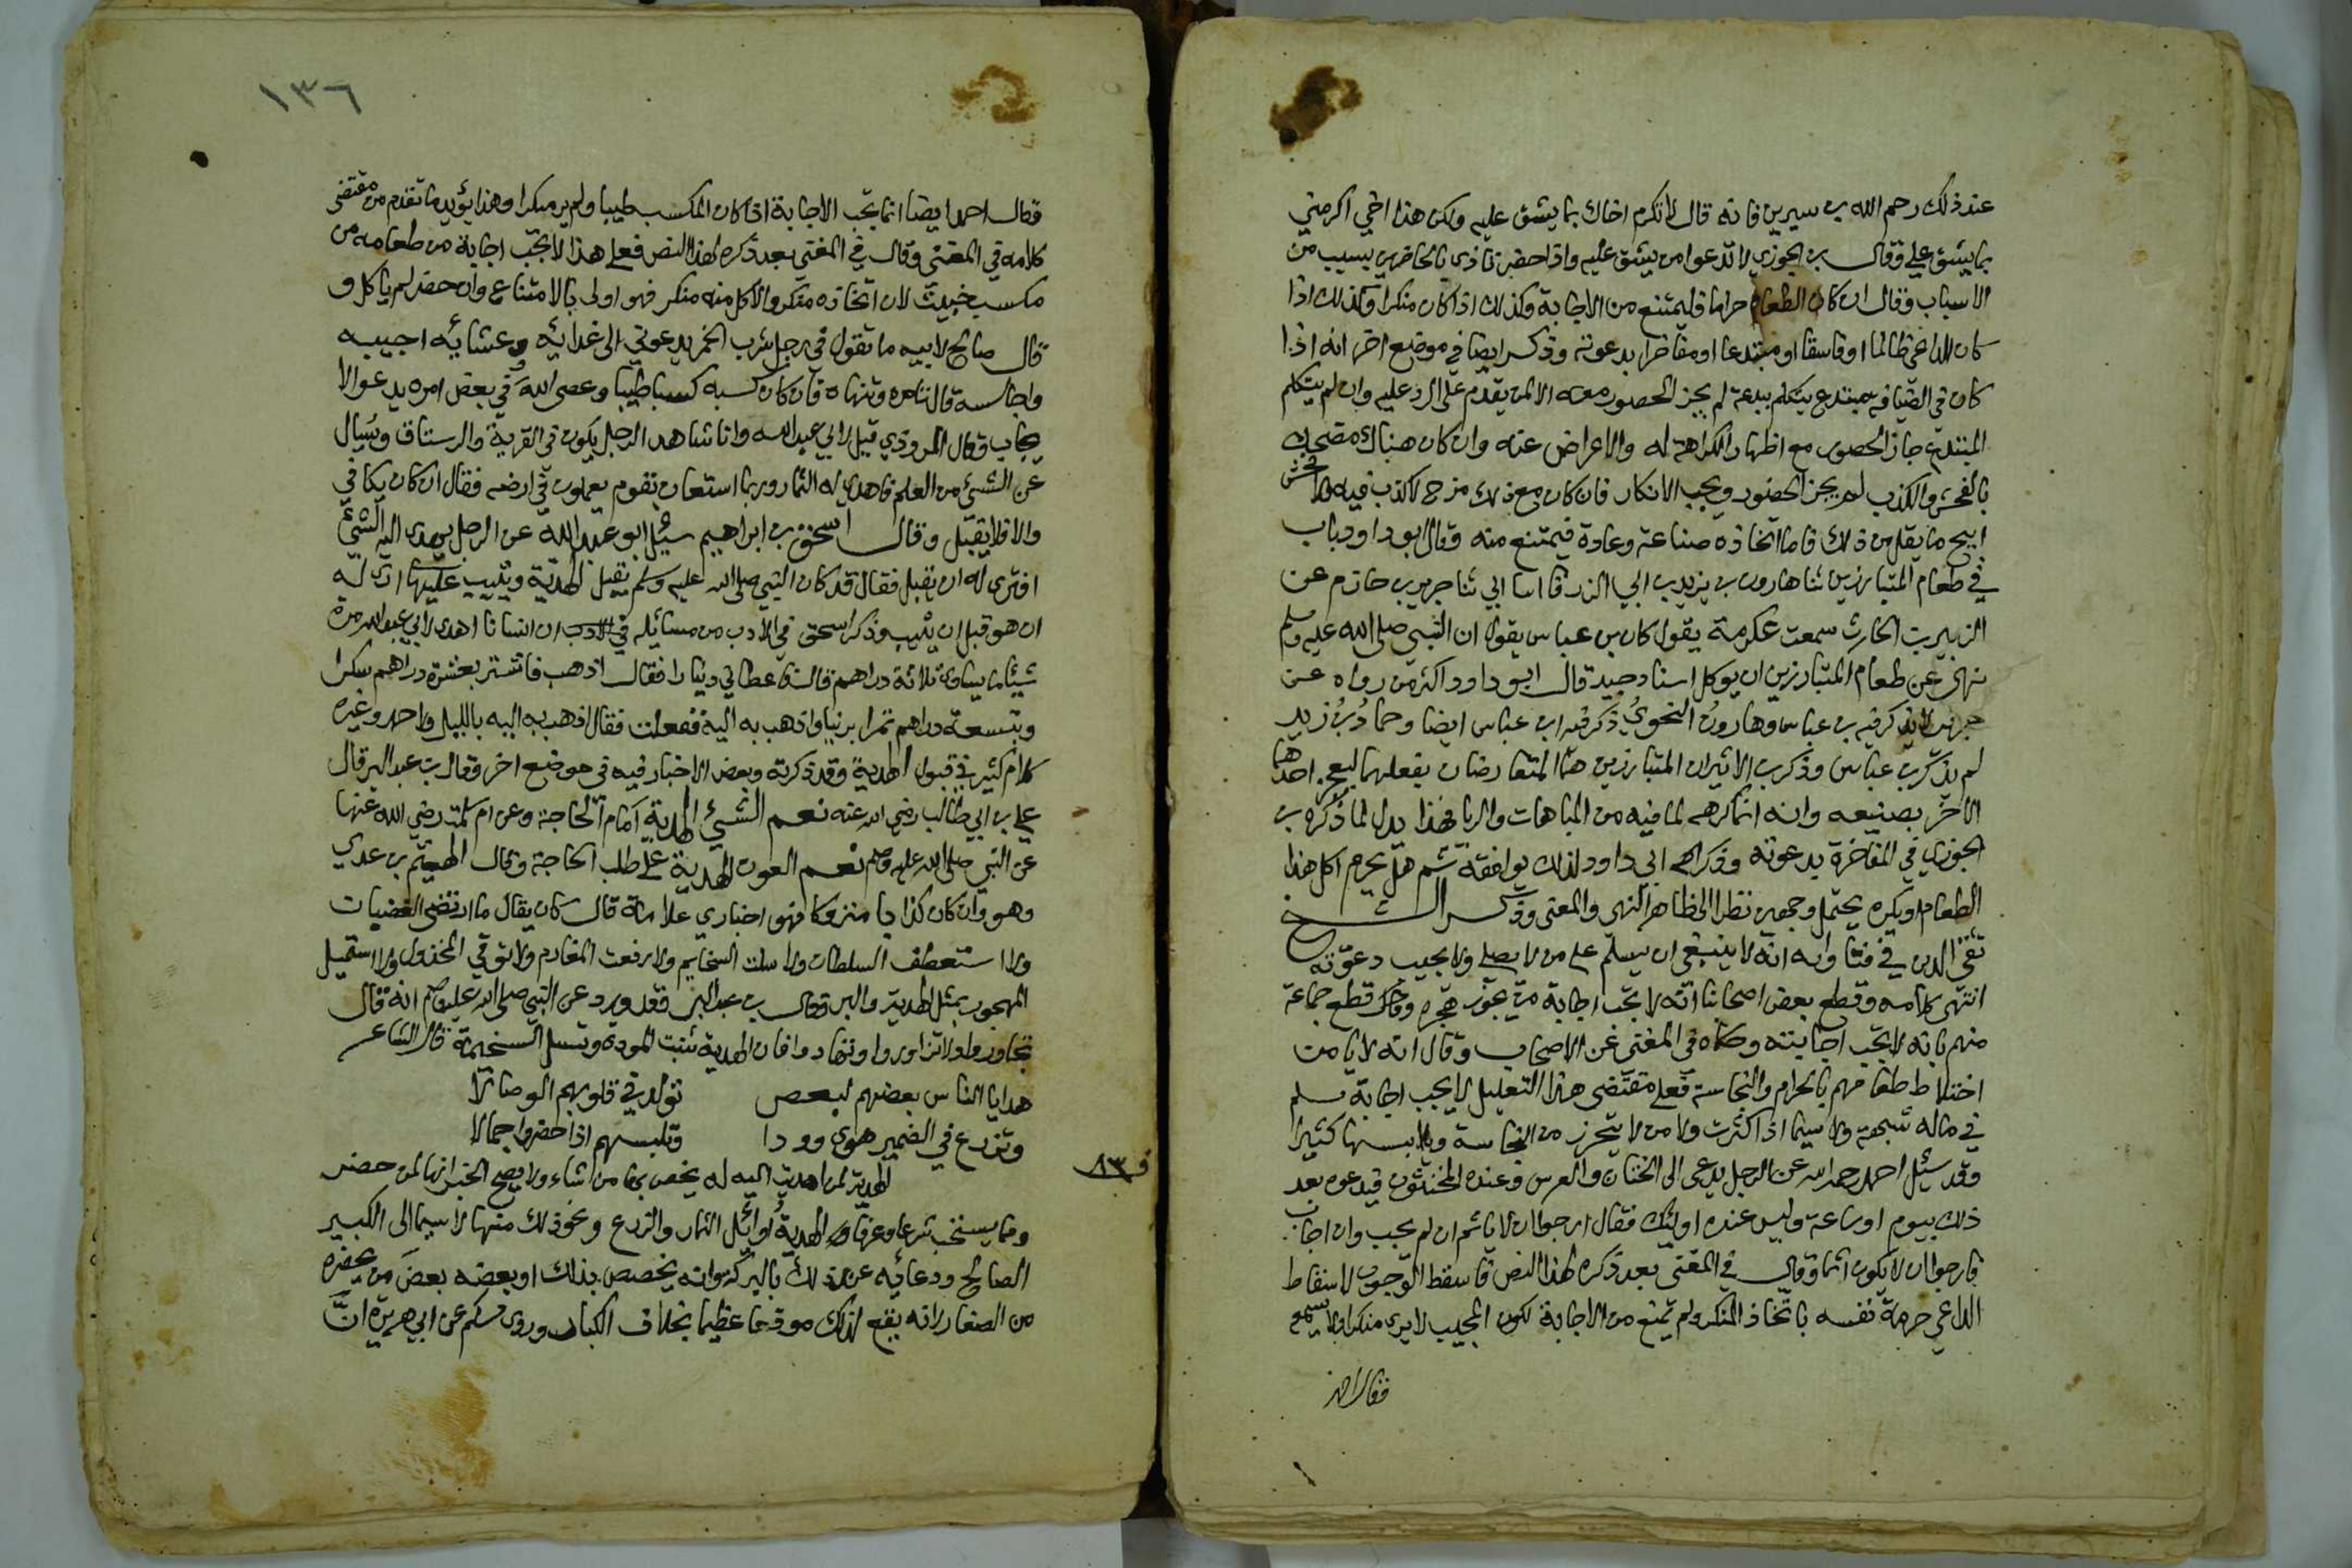 عند ذلك رحم الله بن سيرين فانه قال لا تكرم اخاك بما يشق عليه ولكن هذا اخي اكرمني
بما يشق علي وقال بن الجوزي لا تدعوا من يشق عليه واذا حضر تاذى بالحاضرين بسبب من
الاسباب وقال ان كان الطعام حراما فليمتنع من الاجابة وكذلك اذا كان منكرا وكذلك اذا
كان الداعي ظالما او فاسقا او مبتدعا او مفاخرا بدعوته وذكر ايضا في موضع اخر انه اذا
كان في الضيافه مبتدع يتكلم ببدعة لم يجز الحضور معه الا لمن يقدم على الرد عليه وان لم يتكلم
المبتدع جاز الحضور مع اظهار الكراهة له والاعراض عنه وان كان هناك مضحك
بالفحش والكذب لم يجز الحضور ويجب الانكار فان كان مع ذلك مزح لا كذب فيه ولا فحش
ابيح ما يقل من ذلك فاما اتخاذه صناعة وعادة فيمتنع منه وقال ابو داود باب
في طعام المتباريين ثنا هارون بن يزيد بن ابي الزرقا انا ابي ثنا جرير بن حازم عن
الزبير بن الحارث سمعت عكرمة يقول كان بن عباس يقول ان النبي صلى الله عليه وسلم
نهى عن طعام المتباريين ان يوكل اسناد جيد قال ابو داود اكثر من رواه عن
جرير لا يذكر فيه بن عباس وهارون النحوي ذكر فيه ابن عباس ايضا وحماد بن زيد
لم يذكر بن عباس وذكر بن الاثير ان المتباريين هما المتعارضان بفعلهما ليعجز احدهما
الاخر بصنيعه وانه انما كرهه لما فيه من المباهات والريا فهذا يدل لما ذكره بن
الجوزي في المفاخرة بدعوته وذكر ابي داود لذلك يوافقه ثم هل يحرم اكل هذا
الطعام او يكره يحتمل وجهين نظرا الى ظاهر النهي والمعنى وذكر الشيخ
تقي الدين في فتاويه انه لا ينبغي ان يسلم على من لا يصلي ولا يجيب دعوته
انتهى كلامه وقطع بعض اصحابنا انه لا تجب اجابة من يجوز هجره وكذلك قطع جماعة
منهم بانه لا تجب اجابته وحكاه في المغني عن الاصحاب وقال انه لا يامن
اختلاط طعامهم بالحرام والنجاسة فعلى مقتضى هذا التعليل لا يجب اجابة مسلم
في ماله شبهة ولا سيما اذا كثرت ولا من لا يتحرز من النجاسة ويلابسها كثيرا
وقد سئل احمد رحمه الله عن الرجل يدعى الى الختان والعرس وعنده المخنثون فيدعوه بعد
ذلك بيوم او ساعة وليس عنده اولئك فقال ارجو ان لا ياثم ان لم يجب وان اجاب
فارجو ان لا يكون اثما وقال في المغني بعد ذكره لهذا النص فاسقط الوجوب لاسقاط
الداعي حرمة نفسه باتخاذ المنكر ولم يمنع من الاجابة لكون المجيب لا يرى منكرا ولا يسمع
فقال احمد
١٣٦
وقال احمد ايضا انما تجب الاجابة اذا كان المكسب طيبا ولم ير منكرا وهذا يؤيد ما تقدم من مقتضى
كلامه في المغني وقال في المغني بعد ذكره لهذا النص فعلى هذا لا تجب اجابة من طعامه من
مكسب خبيث لان اتخاذه منكر والاكل منه منكر فهو اولى بالامتناع وان حضر لم ياكل و
قال صالح لابيه ما تقول في رجل شرب الخمر يدعوني الى غدائه وعشائه اجيبه
واجالسه قال تامره وتنهاه فان كان كسبه كسبا طيبا وعصى الله في بعض امره يدعو الا
يجاب وقال المروذي قيل لابي عبد الله وانا شاهد الرجل يكون في القرية والرستاق ويسال
عن الشيئ من العلم فاهدي له الثمار وربما استعان بقوم يعملون في ارضه فقال ان كان يكافي
والا فلا يقبل وقال اسحق بن ابراهيم سئل ابو عبد الله عن الرجل يهدى اليه الشيئ
افترى له ان يقبل فقال قد كان النبي صلى الله عليه وسلم يقبل الهدية ويثيب عليها ارى له
ان هو قبل ان يثيب وذكر اسحق في الادب من مسائله في الادب ان انسانا اهدى لابي عبد الله مرة
شيئا يساوى ثلاثة دراهم قال فاعطاني دينارا فقال اذهب فاشتر بعشرة دراهم سكرا
وبتسعة دراهم تمرا برنيا واذهب به اليه ففعلت فقال اذهب به اليه بالليل ولاحمد وغيره
كلام كثير في قبول الهدية وقد ذكرته وبعض الاخبار فيه في موضع اخر وقال بن عبد البر قال
علي بن ابي طالب رضي الله عنه نعم الشيئ الهدية امام الحاجة وعن ام سلمة رضي الله عنها
عن النبي صلى الله عليه وسلم نعم العون الهدية على طلب الحاجة وقال الهيثم بن عدي
وهو وان كان كذابا متروكا فهو اخباري علامة قال كان يقال ما ارتضى الغضبان
ولا استعطف السلطان ولا سلت السخايم ولا رفعت المغارم ولا توقي المحذول ولا استميل
المهجور بمثل الهدية والبر وقال بن عبد البر فقد ورد عن النبي صلى الله عليه وسلم انه قال
تجاوروا ولا تزاوروا وتهادوا فان الهدية تثبت المودة وتسل السخيمة قال الشاعر
هدايا الناس بعضهم لبعض تولد في قلوبهم الوصالا
وتزرع في الضمير هوى وودا وتلبسهم اذا حضروا جمالا
الهدية لمن اهديت اليه له يخص بها من اشاء ولا يصح الخبر انها لمن حضر
ومما يستحب شرعا وعرفا الهدية اوائل الثمار والزرع ونحو ذلك منها لا سيما الى الكبير
الصالح ودعائه عند ذلك بالبركة وانه يخصص بذلك او بعضه بعض من يحضره
من الصغار لانه يقع لذلك موقعا عظيما بخلاف الكبار وروى مسلم عن ابي هريرة ان
ف ٨٣